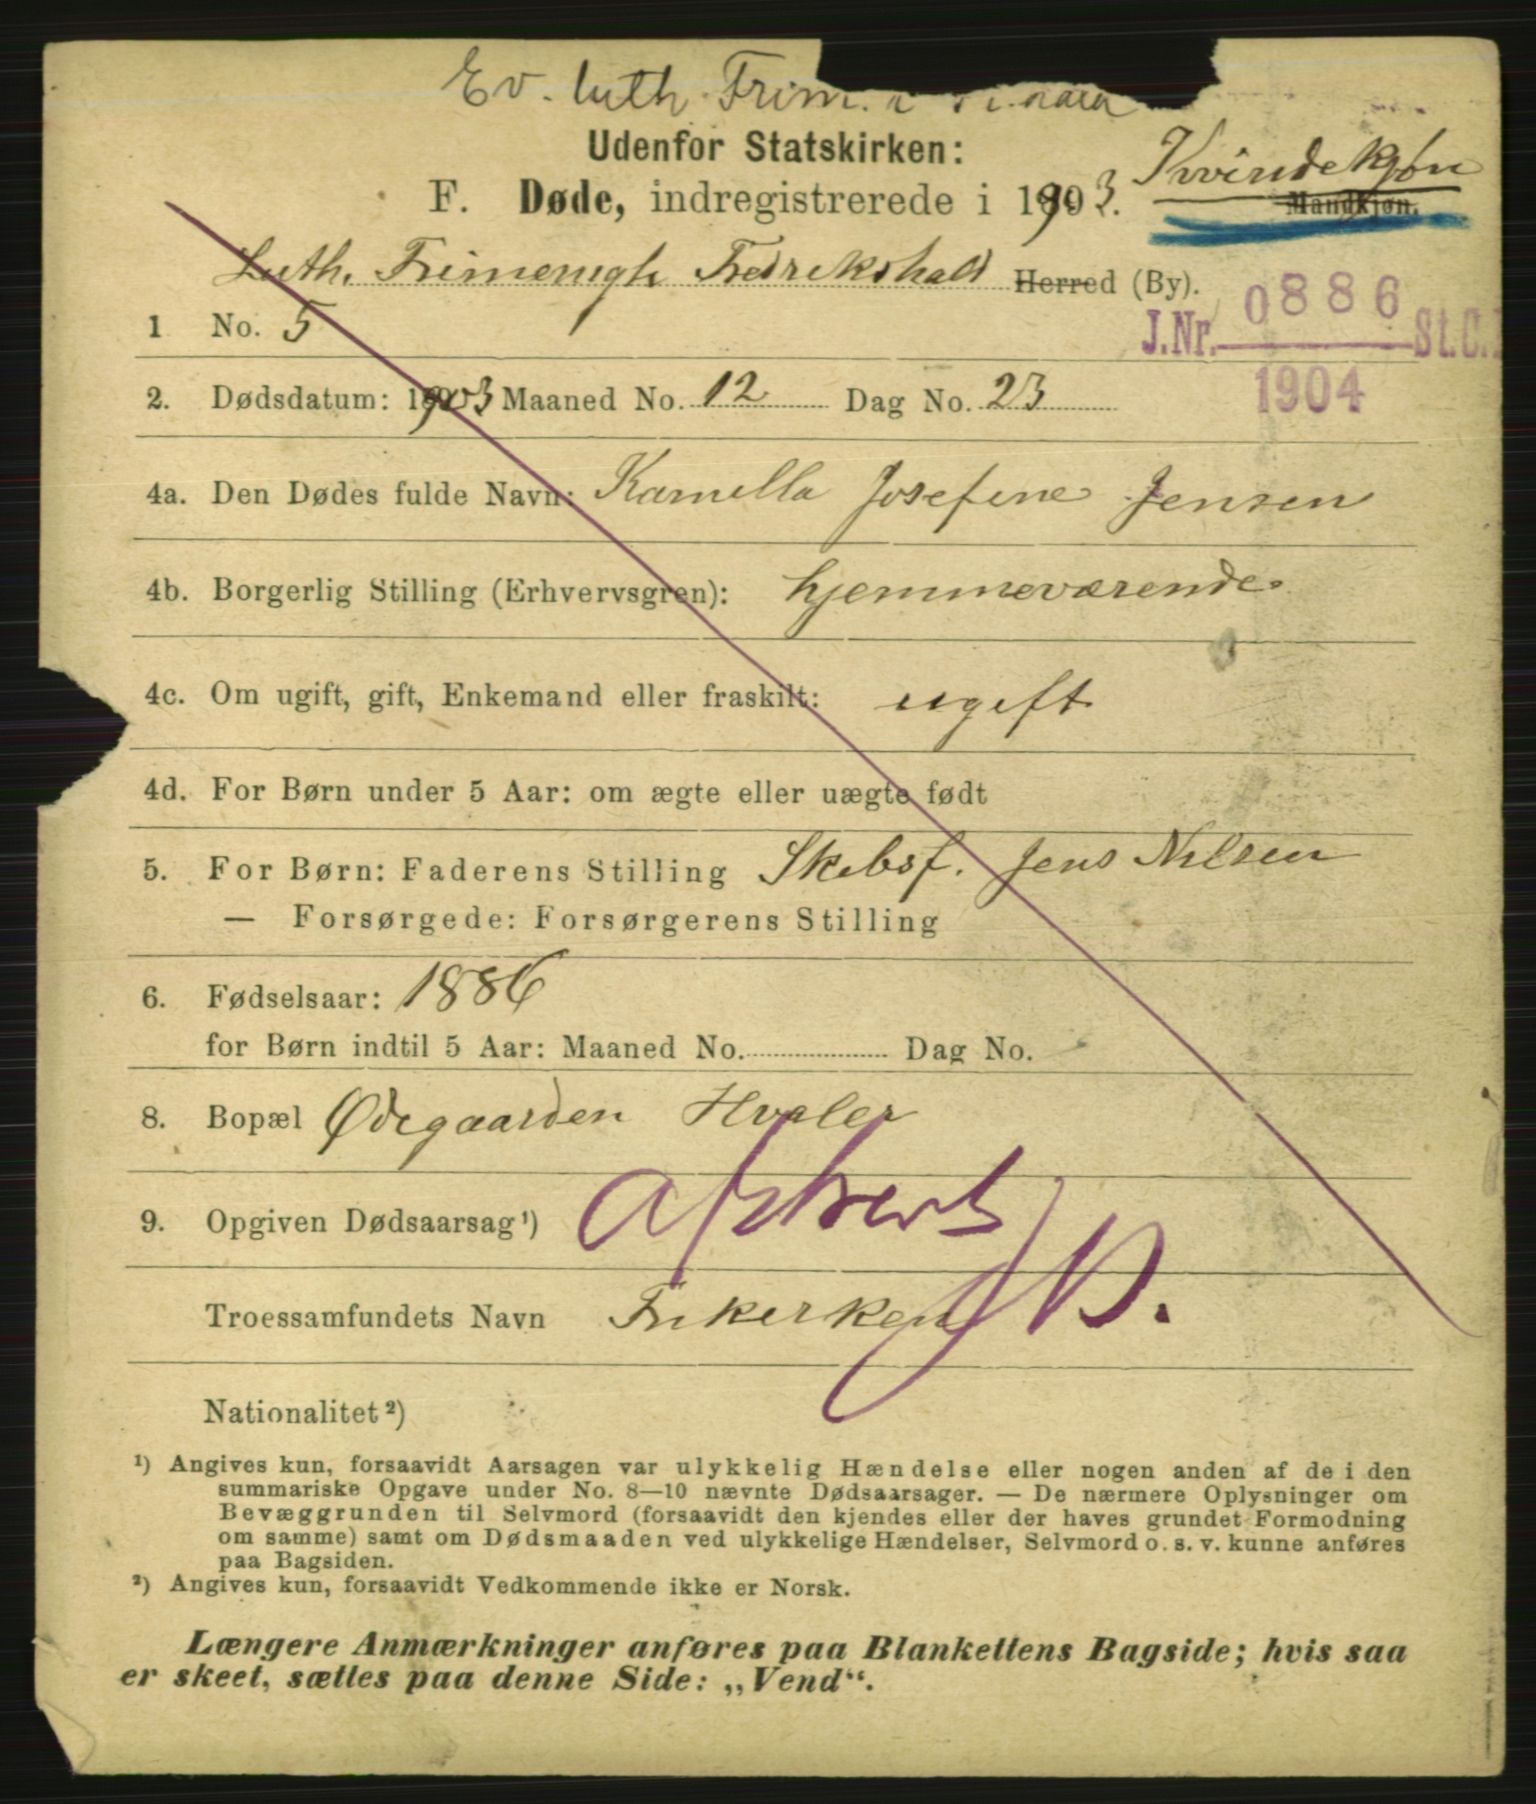 Ev. luth. Frim. i
Udenfor Statskirken:
Kvindekjøn
F. Døde, indregistrerede i 1903.
Mandkjøn.
Luth. Frimenigh Fredrikshald Herred (By).
1 No. 5
J.Nr. 0886 St.C.
1904
2. Dødsdatum: 1903 Maaned No. 12 Dag No. 23
4a. Den Dødes fulde Navn: Kamilla Josefine Jensen
4b. Borgerlig Stilling (Erhvervsgren): hjemmeværende
4c. Om ugift, gift, Enkemand eller fraskilt: ugift
4d. For Børn under 5 Aar: om ægte eller uægte født
5. For Børn: Faderens Stilling Skibsf. Jens Nilsen
— Forsørgede: Forsørgerens Stilling
6. Fødselsaar: 1886
for Børn indtil 5 Aar: Maaned No. Dag No.
8. Bopæl Ødegaarden Hvaler
9. Opgiven Dødsaarsag ¹) afskrevet
JD.
Troessamfundets Navn Frikirken
Nationalitet ²)
¹) Angives kun, forsaavidt Aarsagen var ulykkelig Hændelse eller nogen anden af de i den
summariske Opgave under No. 8—10 nævnte Dødsaarsager. — De nærmere Oplysninger om
Bevæggrunden til Selvmord (forsaavidt den kjendes eller der haves grundet Formodning
om samme) samt om Dødsmaaden ved ulykkelige Hændelser, Selvmord o. s. v. kunne anføres
paa Bagsiden.
²) Angives kun, forsaavidt Vedkommende ikke er Norsk.
Længere Anmærkninger anføres paa Blankettens Bagside; hvis saa
er skeet, sættes paa denne Side: „Vend“.